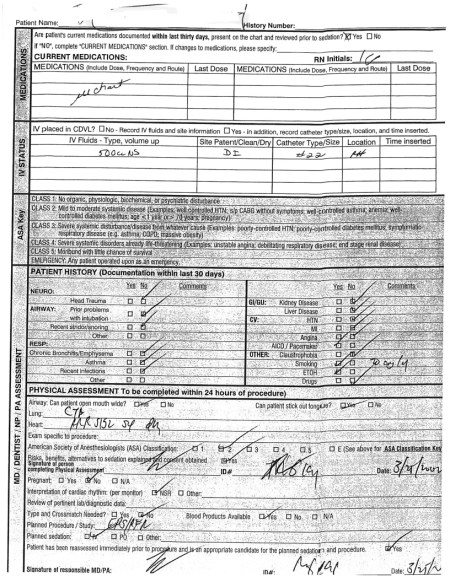 Patient Name: History Number:
Are patient's current medications documented within last thirty days, present on the chart and reviewed prior to sedation? Yes No
If "NO", complete "CURRENT MEDICATIONS" section. If changes to medications, please specify:
CURRENT MEDICATIONS: RN Initials:
MEDICATIONS (Include Dose, Frequency and Route) Last Dose MEDICATIONS (Include Dose, Frequency and Route) Last Dose
MEDICATIONS
chart
IV placed in CDVL? No - Record IV fluids and site information Yes - in addition, record catheter type/size, location, and time inserted.
IV STATUS
IV Fluids - Type, volume up Site Patent/Clean/Dry Catheter Type/Size Location Time inserted
500cc NS DI #22
ASA Key
CLASS 1: No organic, physiologic, biochemical, or psychiatric disturbance
CLASS 2: Mild to moderate systemic disease (Examples: well controlled HTN; s/p CABG without symptoms; well-controlled asthma; anemia; well-
controlled diabetes mellitus; age < 1 year or > 70 years; pregnancy)
CLASS 3: Severe systemic disturbance/disease from whatever cause (Examples: poorly-controlled HTN; poorly-controlled diabetes mellitus; symptomatic
respiratory disease (e.g. asthma, COPD; massive obesity)
CLASS 4: Severe systemic disorders already life-threatening (Examples: unstable angina; debilitating respiratory disease; end stage renal disease)
CLASS 5: Moribund with little chance of survival
EMERGENCY: Any patient operated upon as an emergency.
MD / DENTIST / NP / PA ASSESSMENT
PATIENT HISTORY (Documentation within last 30 days)
Yes No Comments Yes No Comments
NEURO:
Head Trauma GI/GU: Kidney Disease
AIRWAY: Prior problems Liver Disease
with intubation CV: HTN
Recent stridor/snoring MI
Other Angina
RESP: AICD / Pacemaker
Chronic Bronchitis/Emphysema OTHER: Claustrophobia
Asthma Smoking
Recent infections ETOH
Other Drugs
PHYSICAL ASSESSMENT To be completed within 24 hours of procedure)
Airway: Can patient open mouth wide? Yes No Can patient stick out tongue? Yes No
Lung: CTA
Heart:
Exam specific to procedure:
American Society of Anesthesiologists (ASA) Classification: 1 2 3 4 5 E (See above for ASA Classification Key
Risks, benefits, alternatives to sedation explained and consent obtained Yes
Signature of person
completing Physical Assessment ID# Date:
Pregnant: Yes No N/A
Interpretation of cardiac rhythm: (per monitor) NSR Other:
Review of pertinent lab/diagnostic data:
Type and Crossmatch Needed? Yes No Blood Products Available Yes No N/A
Planned Procedure / Study:
Planned sedation: IV PO Other:
Patient has been reassessed immediately prior to procedure and is an appropriate candidate for the planned sedation and procedure. Yes
Signature of responsible MD/PA: ID#: Date: